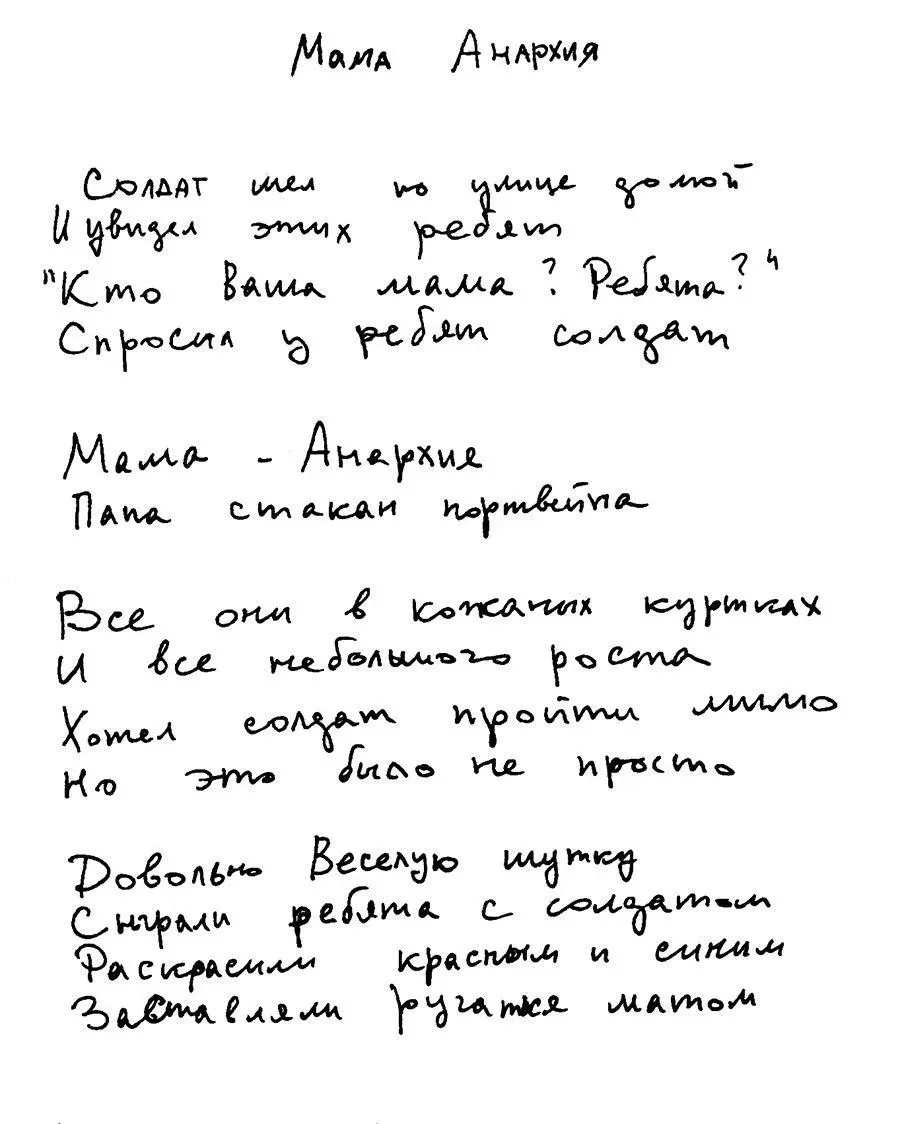 Мама Анархия
Солдат шел по улице домой
И увидел этих ребят
"Кто ваша мама? Ребята?"
Спросил у ребят солдат
Мама - Анархия
Папа стакан портвейна
Все они в кожаных куртках
И все небольшого роста
Хотел солдат пройти мимо
Но это было не просто
Довольно веселую шутку
Сыграли ребята с солдатом
Раскрасили красным и синим
Заставляли ругатся матом